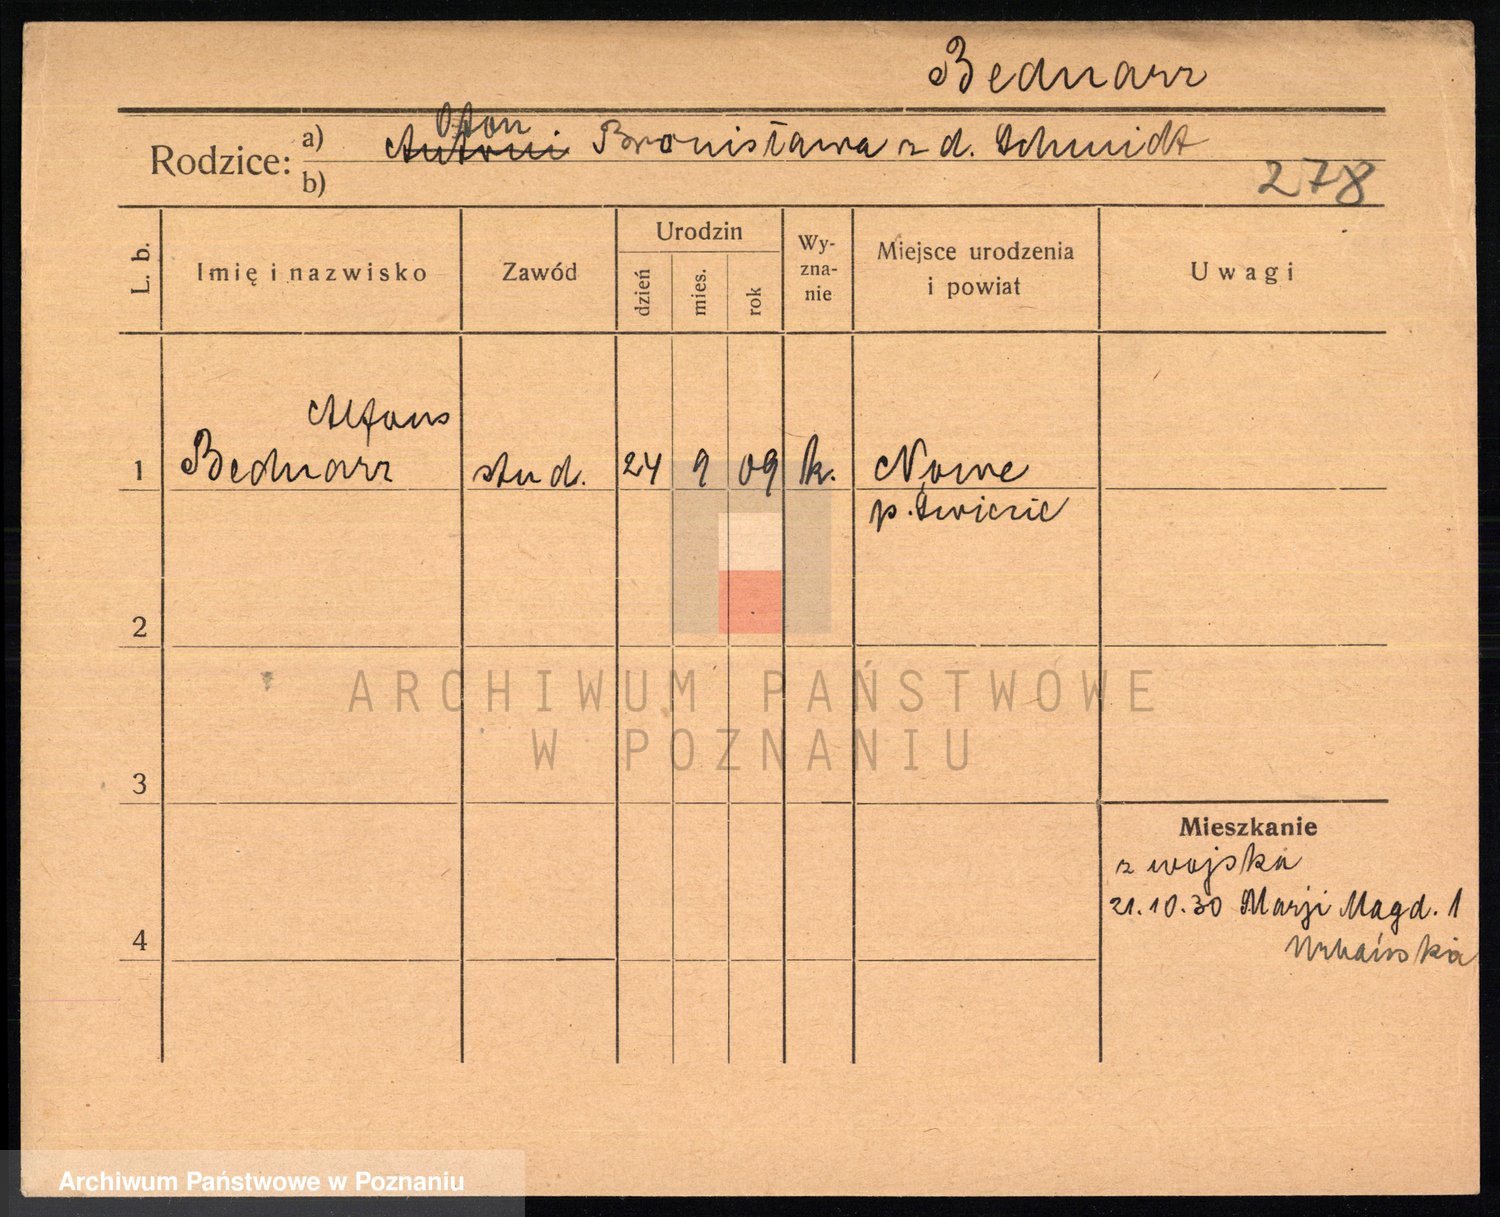 Bednarz
Oton
Rodzice: a) Antoni Bronisława z d. Schmidt
b)
278
L. b.
Imię i nazwisko
Zawód
Urodzin
dzień
mies.
rok
Wy-
zna-
nie
Miejsce urodzenia
i powiat
Uwagi
Alfons
1 Bednarz stud. 24 9 09 k. Nowe
p. Świecie
2
ARCHIWUM PAŃSTWOWE
W POZNANIU
3
Mieszkanie
z wojska
21.10.30 Marji Magd. 1
4
Urbańska
Archiwum Państwowe w Poznaniu